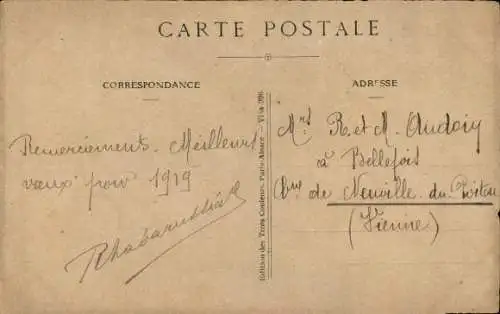 CARTE POSTALE
CORRESPONDANCE
Remerciements. Meilleurs
vœux pour 1919
ADRESSE
Mrs R. et M. Audoin
à Bellefois
Cne de Neuville du Poitou
(Vienne)
Edition des Trois Couleurs, Paris-Alsace